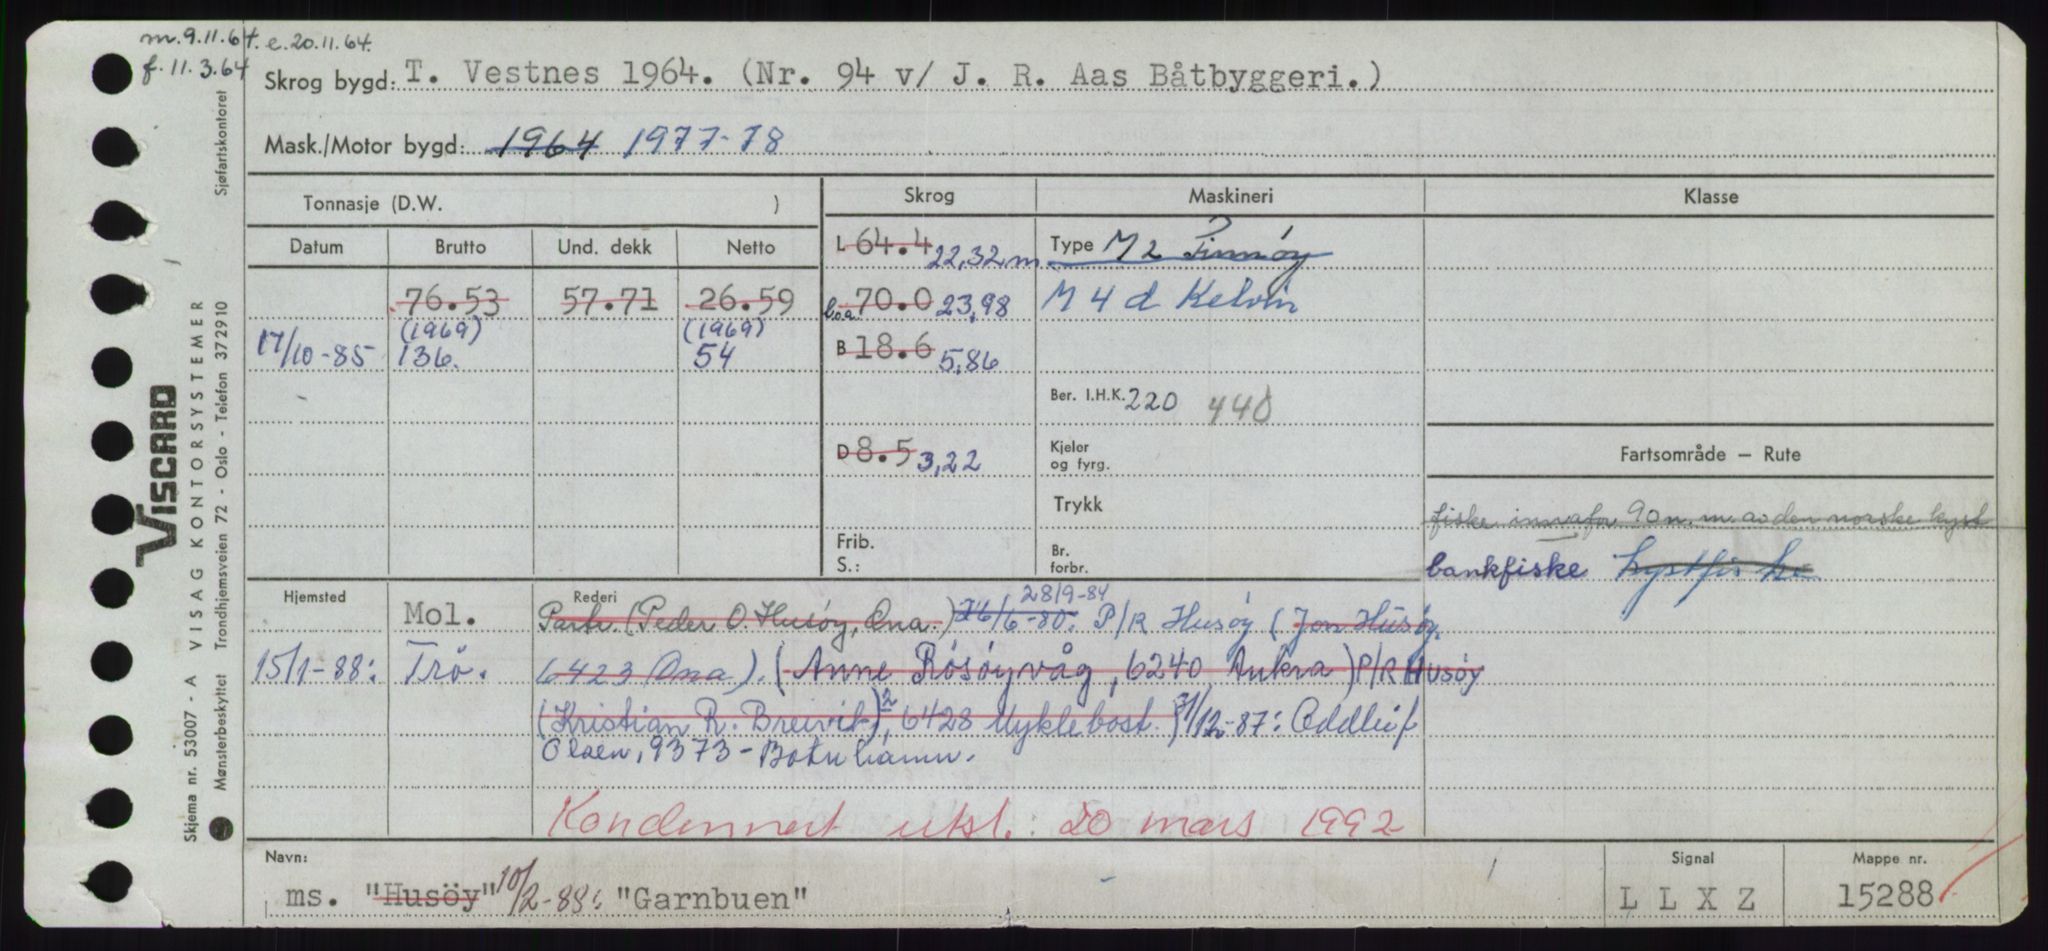 m. 9.11.64. e. 20.11.64.
f. 11.3.64
Skrog bygd: T. Vestnes 1964. (Nr. 94 v/ J. R. Aas Båtbyggeri.)
Mask./Motor bygd: 1964 1977-78
Tonnasje (D.W. )
Skrog
Maskineri
Klasse
Datum
Brutto
Und. dekk
Netto
L 64.4 22,32 m
Type M 2 Finnöy
76.53
57.71
26.59
l.o.a. 70.0 23,98
M 4 d Kelvin
(1969)
(1969)
17/10-85
136.
54
B 18.6 5,86
Ber. I.H.K. 220 440
D 8.5 3,22
Kjeler
og fyrg.
Fartsområde — Rute
Trykk
fiske innafor 90 n. m. av den norske kyst
Frib.
S.:
Br.
forbr.
bankfiske kystfiske
Hjemsted
Mol.
Rederi
28/9-84
Partr. (Peder O. Husöy, Ona.) 26/6-80: P/R Husöy (Jon Husöy,
15/1-88:
Trö.
6423 Ona). (Anne Rösöyvåg, 6240 Aukra) P/R Husöy
(Kristian R. Breivik), 6428 Myklebost.) 31/12-87: Oddleif
Olsen, 9373 - Botnhamn.
Kondemnert utsl. 20 mars 1992
Navn:
ms. "Husöy" 10/2-88: "Garnbuen"
Signal
L L X Z
Mappe nr.
15288
VISCARD
Skjema nr. 53007 - A VISAG KONTORSYSTEMER
Mønsterbeskyttet Trondhjemsveien 72 - Oslo - Telefon 372910
Sjøfartskontoret